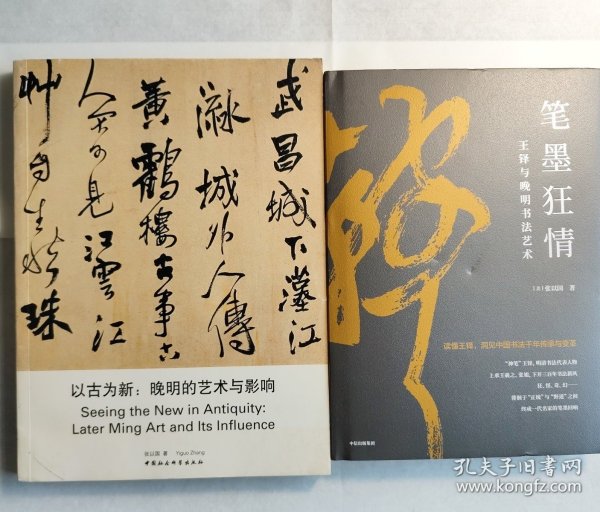 武昌城下濬江
渌城外人傳
黃鶴樓古事六
人不可見江雲江
艸自生
珠
以古为新：晚明的艺术与影响
Seeing the New in Antiquity:
Later Ming Art and Its Influence
张以国 著 Yiguo Zhang
中国社会科学出版社
笔墨狂情
王铎与晚明书法艺术
[美]张以国 著
读懂王铎，洞见中国书法千年传承与变革
“神笔”王铎，明清书法代表人物
上承王羲之、张旭，下开三百年书法新风
狂、怪、奇、幻——
徜徉于“正统”与“野道”之间
终成一代名家的笔墨回响
中信出版集团
孔夫子旧书网
www.kongfz.com